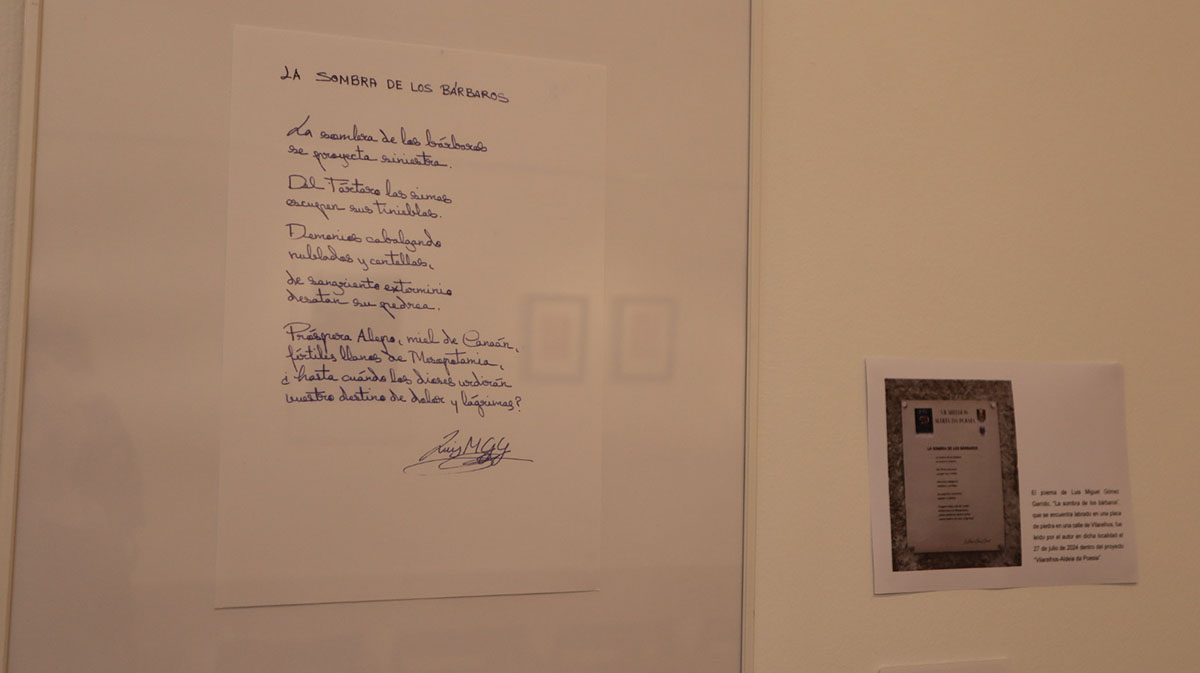 LA SOMBRA DE LOS BÁRBAROS
La sombra de los bárbaros
se proyecta siniestra.
Del Tártaro las simas
escupen sus tinieblas.
Demonios cabalgando
nublados y centellas,
de sangriento exterminio
desatan su pedrea.
Próspera Alepo, miel de Canaán,
fértiles llanos de Mesopotamia,
¿hasta cuándo los dioses urdirán
vuestro destino de dolor y lágrimas?
Luis M GG
VILARELHOS
ALDEIA DA POESIA
LA SOMBRA DE LOS BÁRBAROS
El poema de Luis Miguel Gómez
Garrido, "La sombra de los bárbaros",
que se encuentra labrado en una placa
de piedra en una calle de Vilarelhos, fue
leído por el autor en dicha localidad el
27 de julio de 2024 dentro del proyecto
"Vilarelhos-Aldeia da Poesia"